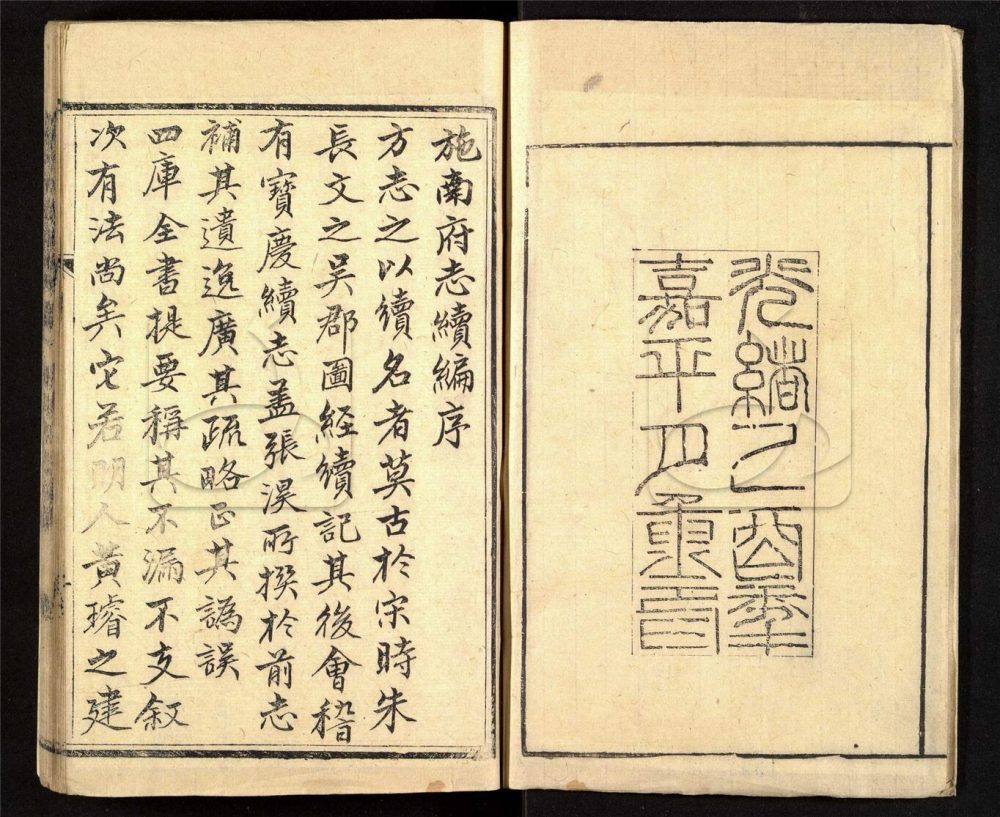 光緒乙酉秊
嘉平月
施南府志續編序
方志之以續名者莫古於宋時朱
長文之吳郡圖經續記其後會稽
有寶慶續志盖張淏所撰於前志
補其遺逸廣其疏略正其譌誤
四庫全書提要稱其不漏不支叙
次有法尚矣它若明人黃璿之建